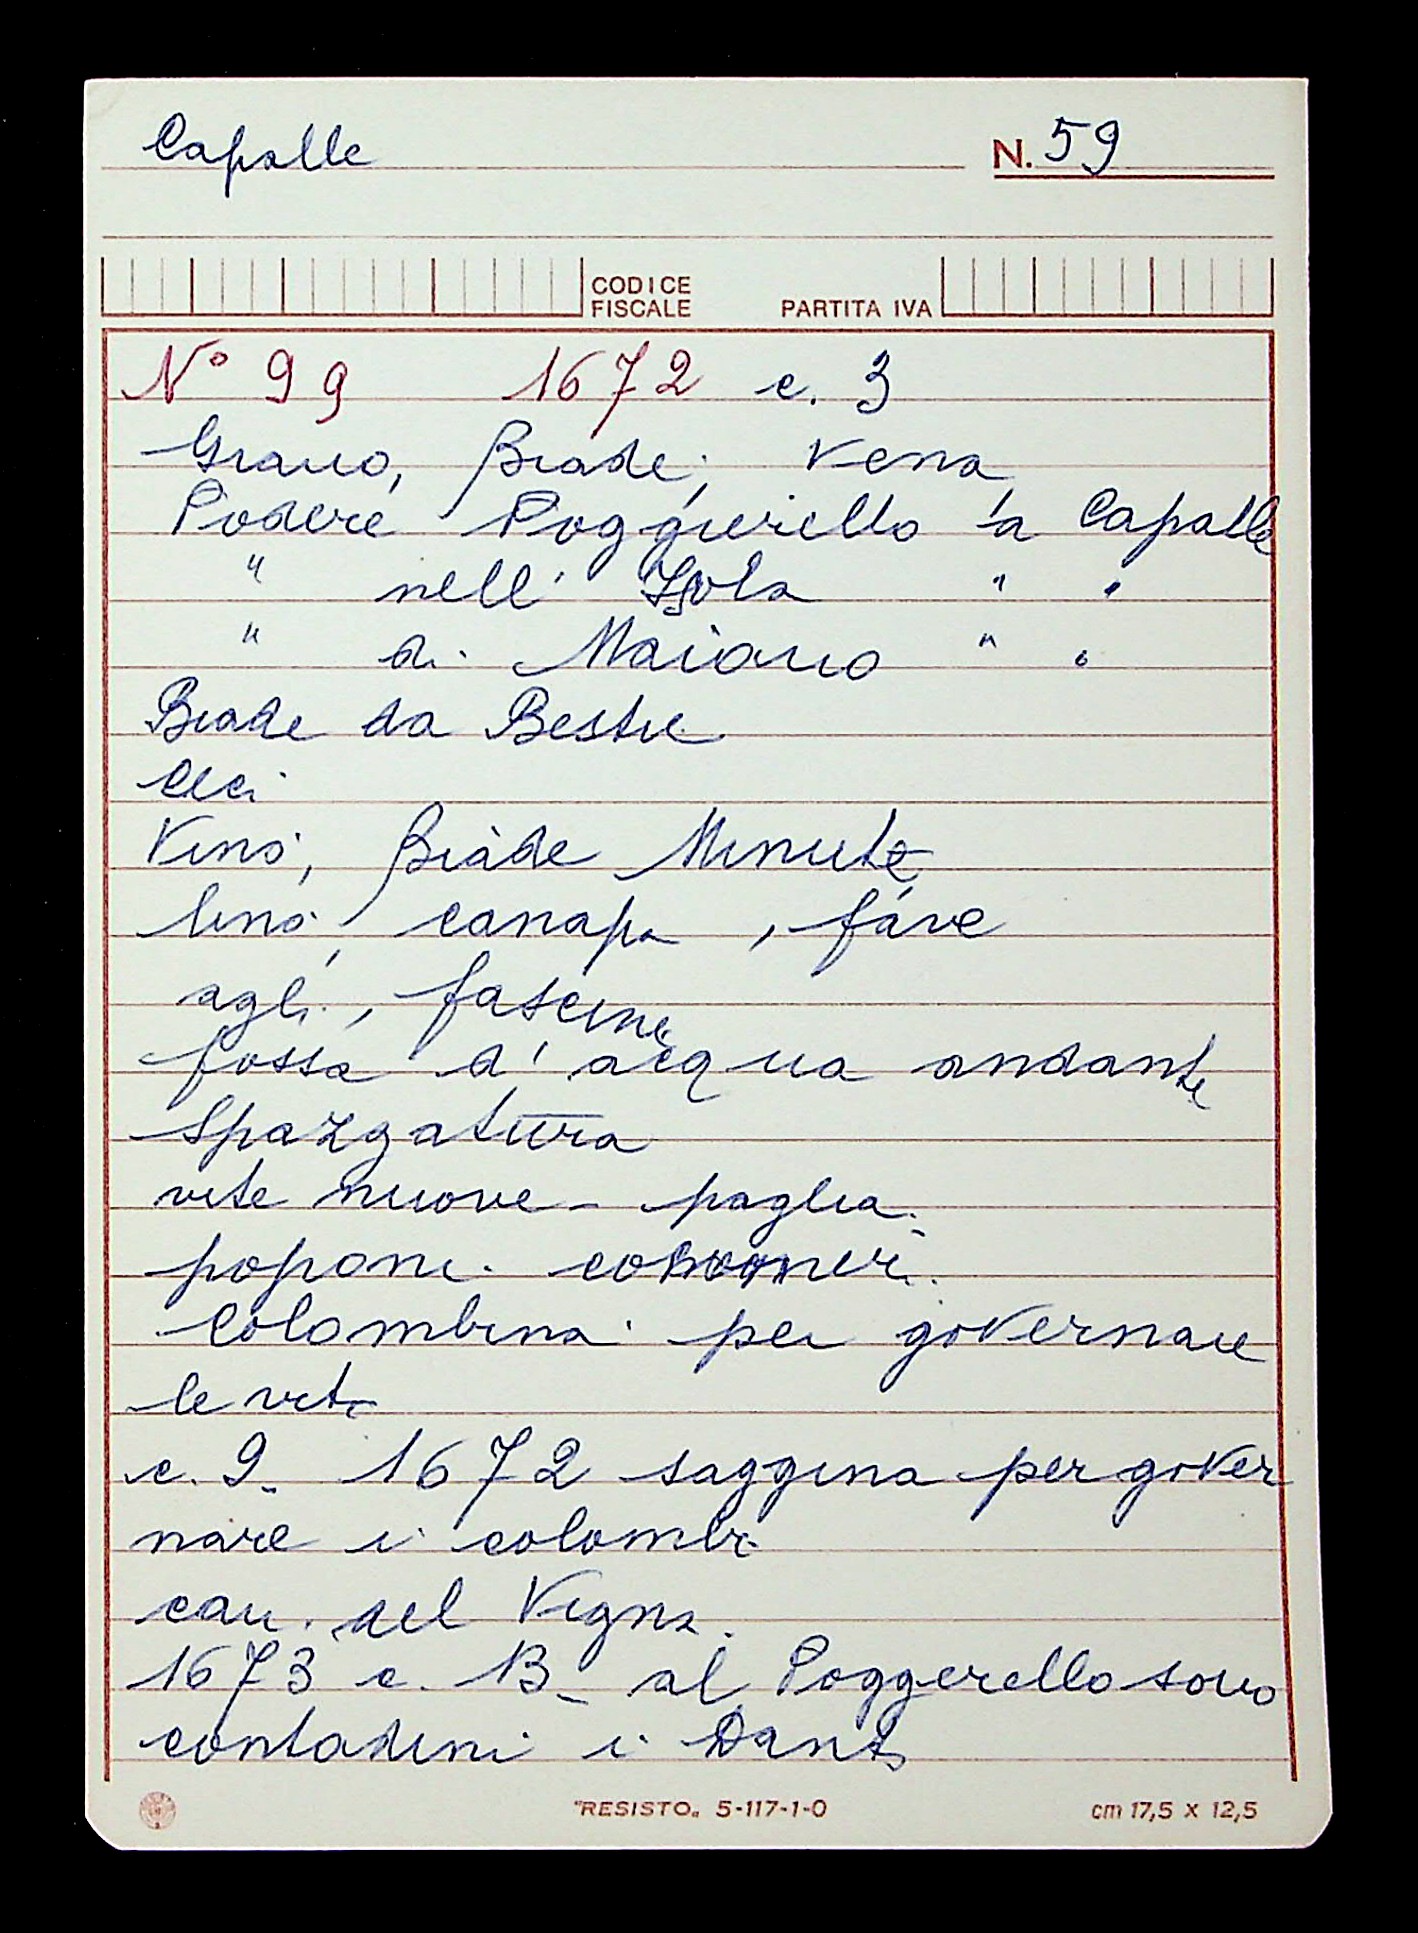 Capalle N. 59
CODICE
FISCALE PARTITA IVA
N° 99 1672 c. 3
Grano, Biade, Vena
Podere Poggierello a Capalle
" nell' Isola " "
" di Maiano " "
Biade da Bestie
Ceci
Vino, Biade Minute
lino, canapa, fave
agli, fascine
fossa d'acqua andante
Spazzatura
vite nuove - paglia
poponi cocomeri
Colombina per governare
le viti
c. 9_ 1672 saggina per gover
nare i colombi
can. del Vigna
1673 c. 13_ al Poggerello sono
contadini i Danti
"RESISTO" 5-117-1-0 cm 17,5 x 12,5